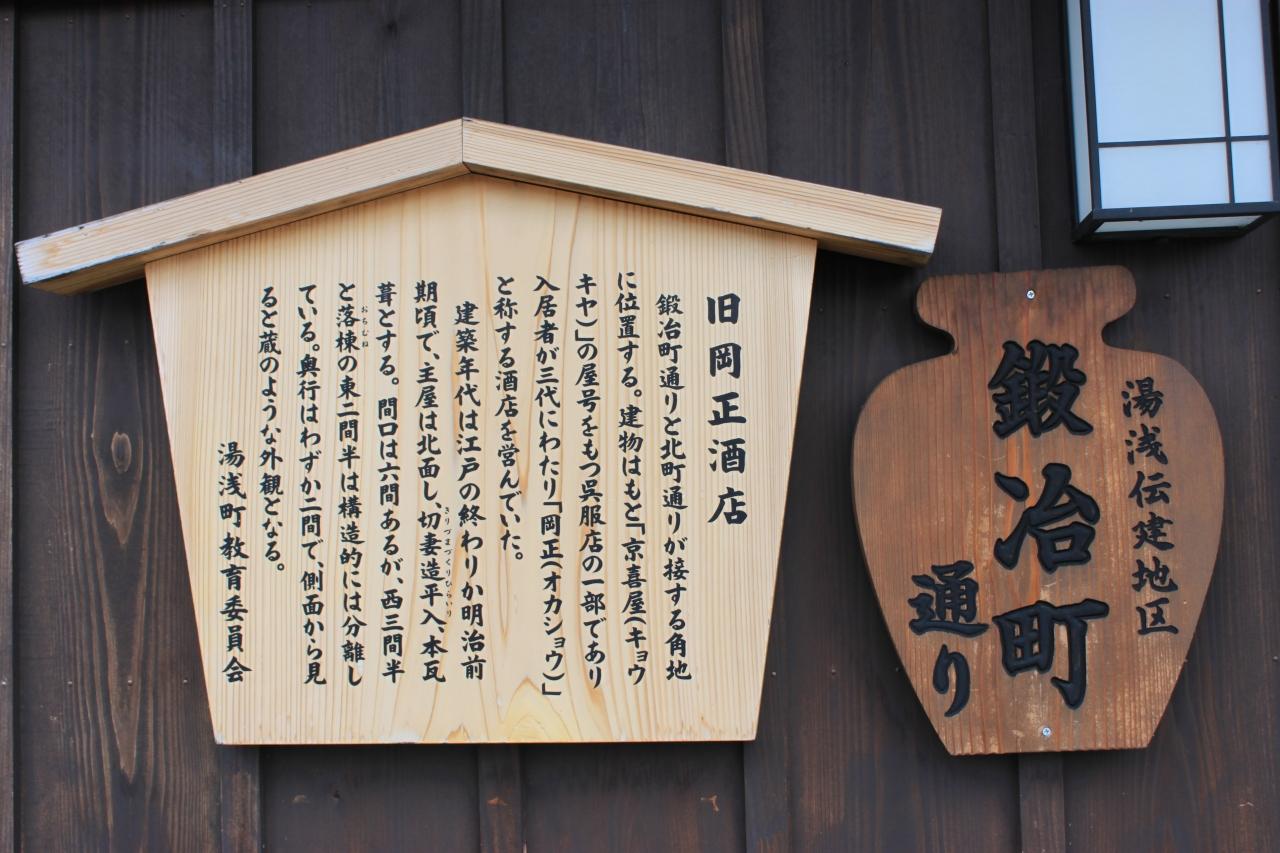 旧岡正酒店
鍛冶町通りと北町通りが接する角地
に位置する。建物はもと「京喜屋(キョウ
キヤ)」の屋号をもつ呉服店の一部であり
入居者が三代にわたり「岡正(オカショウ)」
と称する酒店を営んでいた。
建築年代は江戸の終わりか明治前
期頃で、主屋は北面し、切妻造平入、本瓦
きりづまづくりひらいり
葺とする。間口は六間あるが、西三間半
と落棟の東二間半は構造的には分離し
おちむね
ている。奥行はわずか二間で、側面から見
ると蔵のような外観となる。
湯浅町教育委員会
湯浅伝建地区
鍛冶町
通り